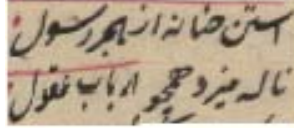 استن حنانه از هجر رسول
ناله میزد همچو ارباب عقول